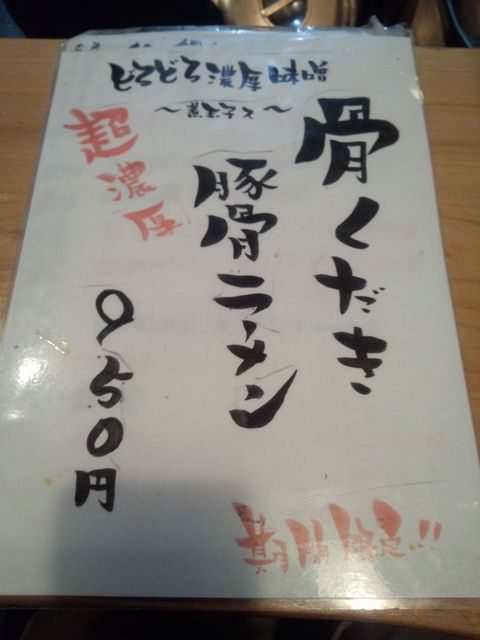 どろどろ濃厚味噌
骨くだき
豚骨ラーメン
超濃厚
950円
期間限定!!